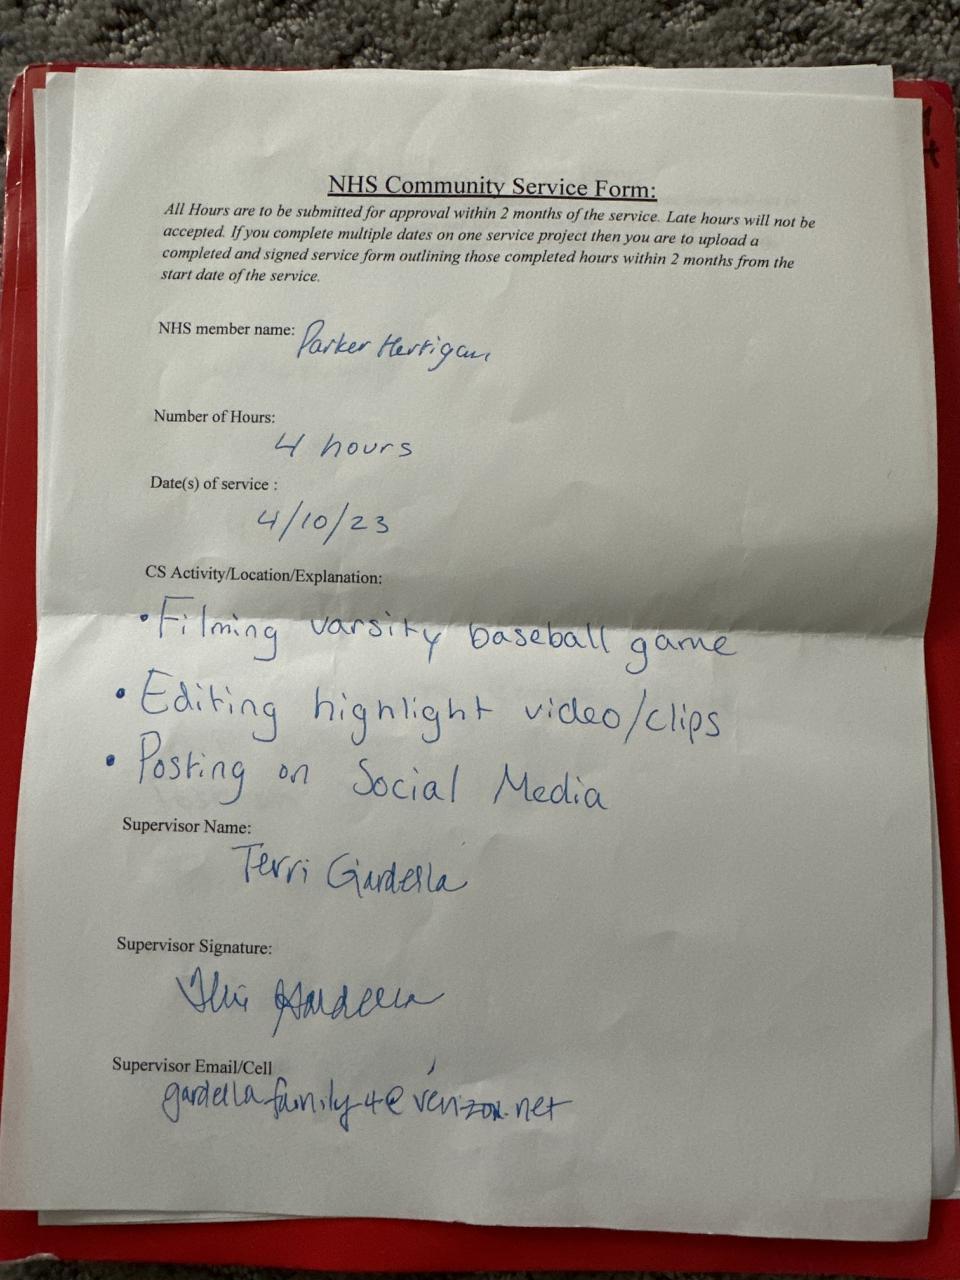 NHS Community Service Form:
All Hours are to be submitted for approval within 2 months of the service. Late hours will not be
accepted. If you complete multiple dates on one service project then you are to upload a
completed and signed service form outlining those completed hours within 2 months from the
start date of the service.
NHS member name: Parker Hertigan
Number of Hours:
4 hours
Date(s) of service :
4/10/23
CS Activity/Location/Explanation:
• Filming varsity baseball game
• Editing highlight video/clips
• Posting on Social Media
Supervisor Name:
Terri Gardella
Supervisor Signature:
Gardella
Supervisor Email/Cell
gardellafamily4@verizon.net